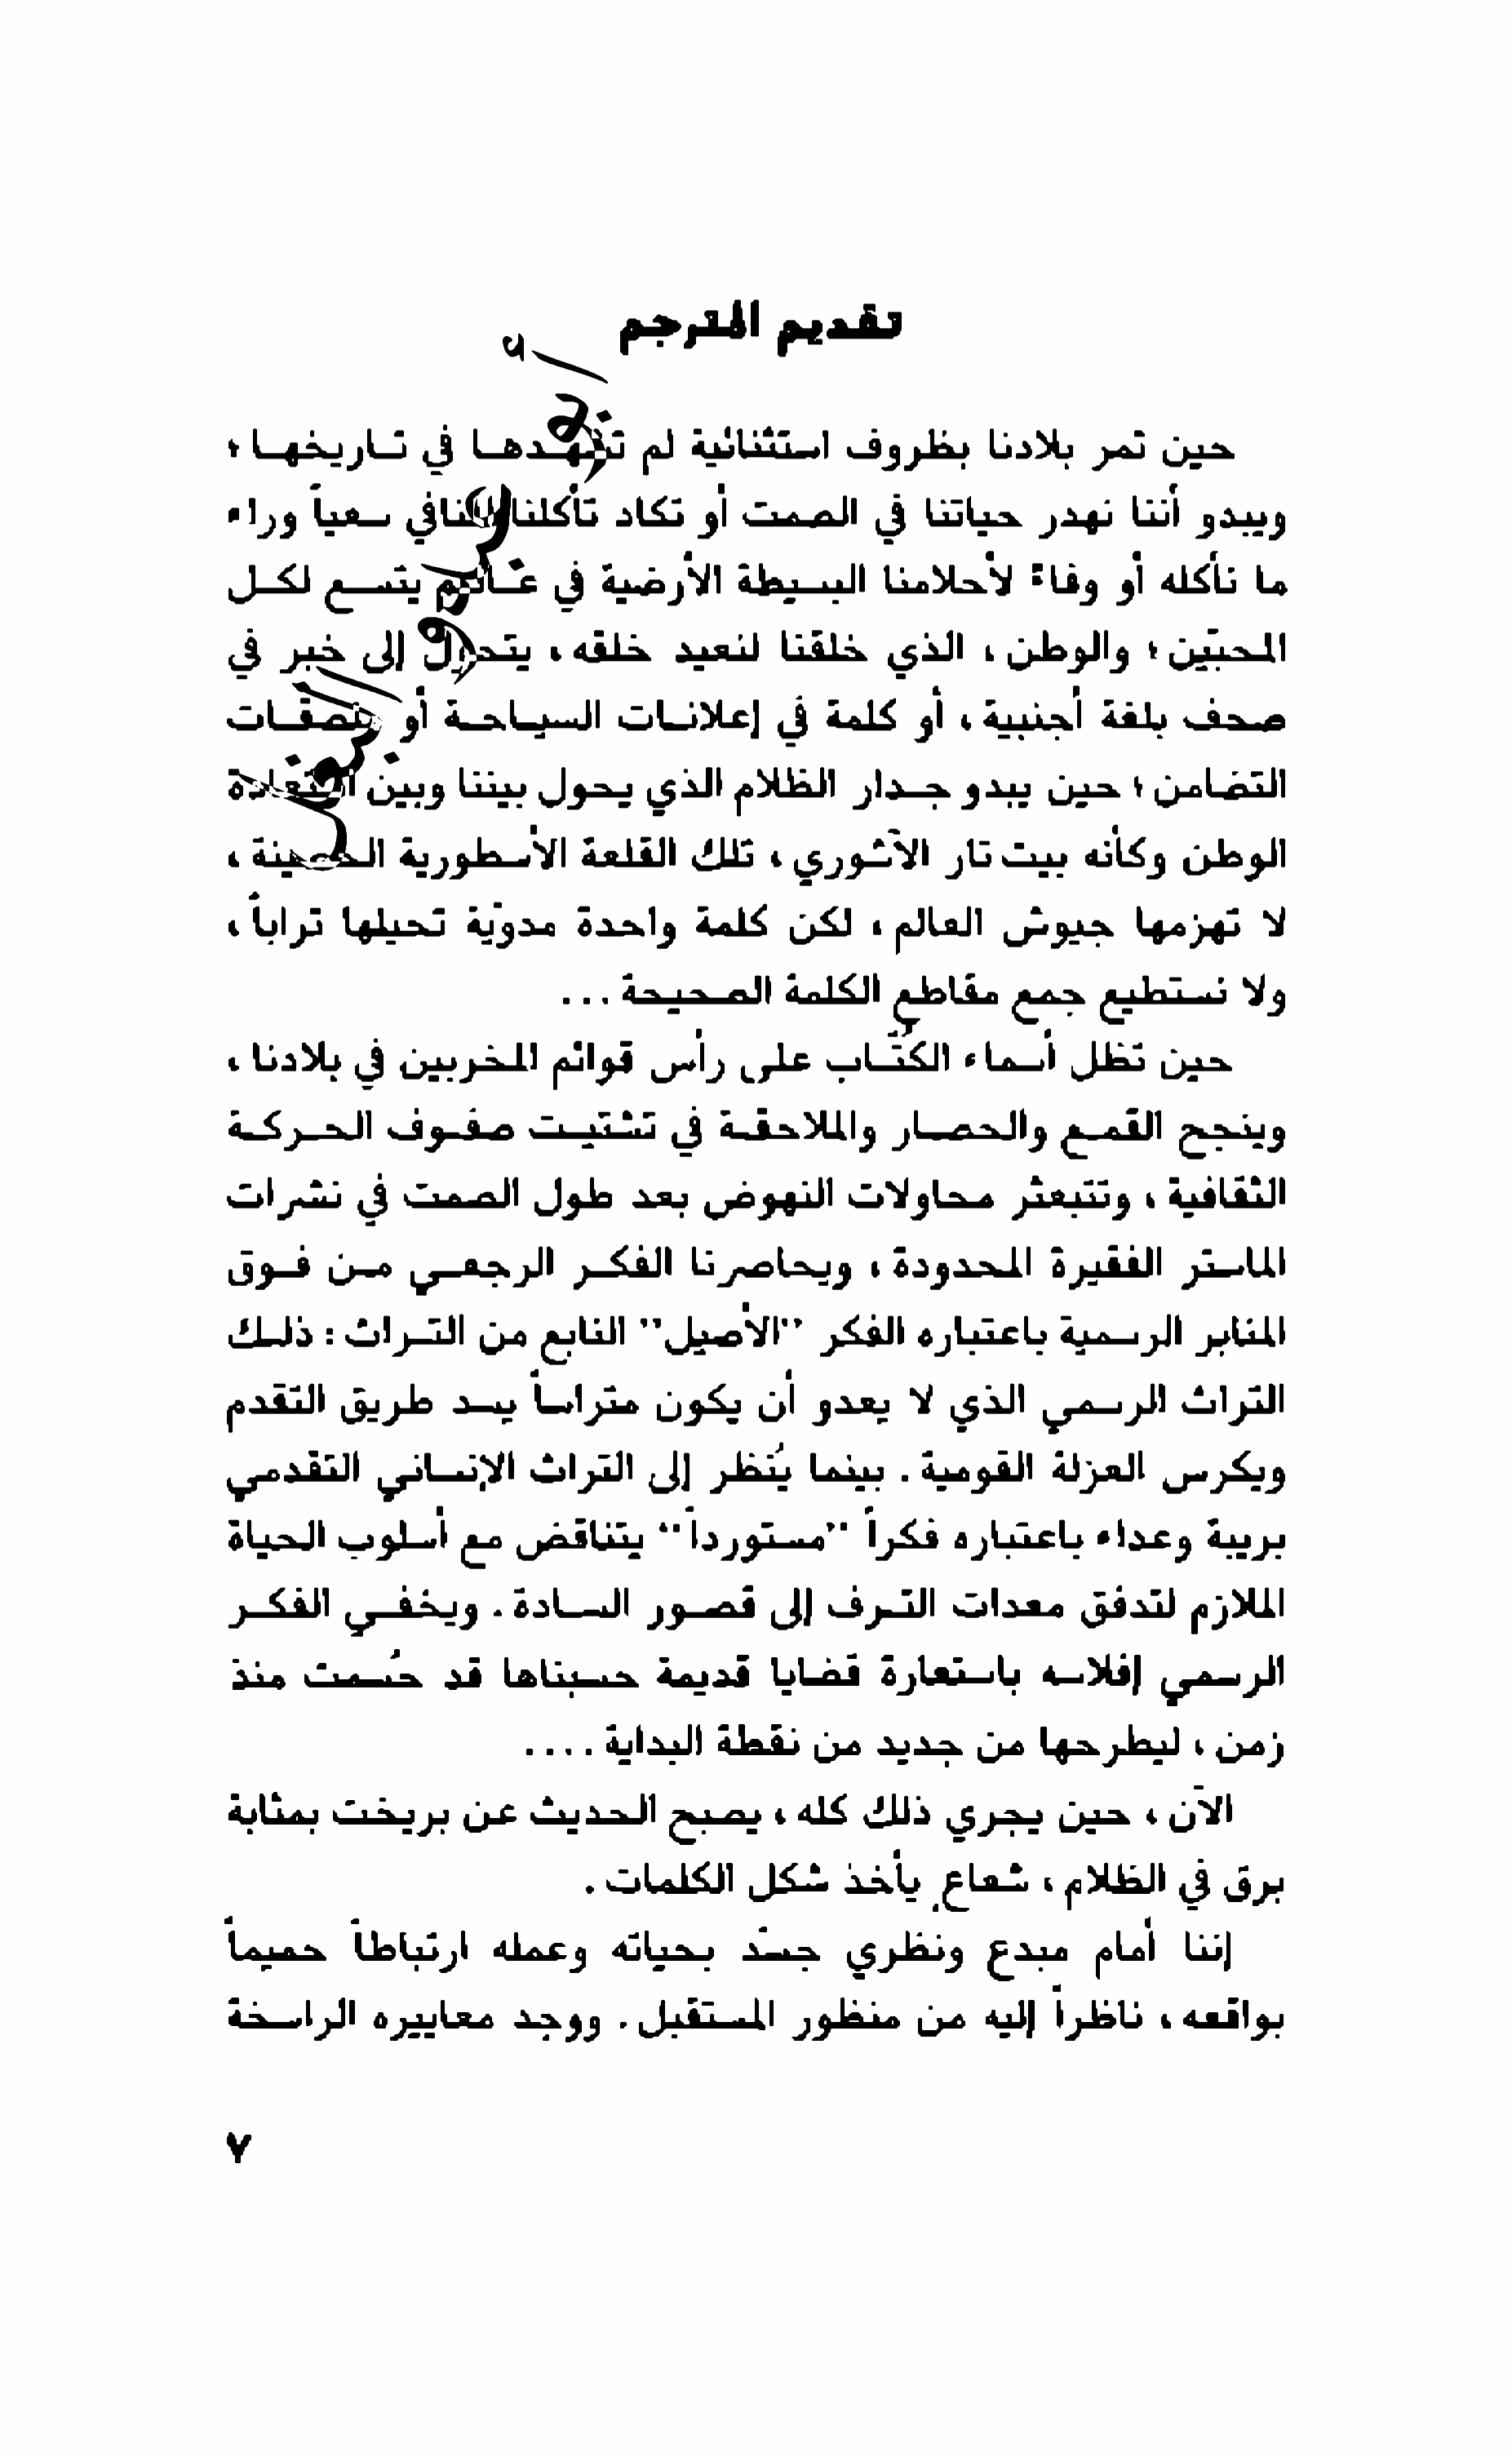 تقديم المترجم
حين تمر بلادنا بظروف استثنائية لم تشهدها في تاريخها ؛
ويبدو أننا نهدر حياتنا في الصمت أو تكاد تأكلنا المنافي سعياً وراء
ما نأكله أو وفاءً لأحلامنا البسيطة الأرضية في عالم يتسع لكل
المحبّين ؛ والوطن ، الذي خلقنا لنعيد خلقه ، يتحول إلى خبر في
صحف بلغة أجنبية ، أو كلمة في إعلانات السياحة أو ملصقات
التضامن ؛ حين يبدو جدار الظلام الذي يحول بيننا وبين استعادة
الوطن وكأنه بيت تار الآشوري ، تلك القلعة الأسطورية الحصينة ،
لا تهزمها جيوش العالم ، لكن كلمة واحدة مدوّية تحيلها تراباً ،
ولا نستطيع جمع مقاطع الكلمة الصحيحة ...
حين تظل أسماء الكُتّاب على رأس قوائم المخربين في بلادنا ،
وينجح القمع والحصار والملاحقة في تشتيت صفوف الحركة
الثقافية ، وتتبعثر محاولات النهوض بعد طول الصمت في نشرات
الماستر الفقيرة المحدودة ، ويحاصرنا الفكر الرجعي من فوق
المنابر الرسمية باعتباره الفكر "الأصيل" النابع من التراث : ذلك
التراث الرسمي الذي لا يعدو أن يكون متراساً يسد طريق التقدم
ويكرس العزلة القومية . بينما يُنظر إلى التراث الإنساني التقدمي
بريبة وعداء باعتباره فكراً "مستورداً" يتناقض مع أسلوب الحياة
الملازم لتدفق معدات الترف إلى قصور السادة . ويخفي الفكر
الرسمي إفلاسه باستعارة قضايا قديمة حسبناها قد حُسمت منذ
زمن ، ليطرحها من جديد من نقطة البداية ....
الآن ، حين يجري ذلك كله ، يصبح الحديث عن بريخت بمثابة
برق في الظلام ، شعاعٍ يأخذ شكل الكلمات .
إننا أمام مبدع ونظري جسّد بحياته وعمله ارتباطاً حميماً
بواقعه ، ناظراً إليه من منظور المستقبل . ووجد معاييره الراسخة
٧